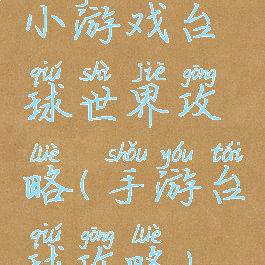 小游戏台
qiú shì jiè gōng
球世界攻
lüè shǒu yóu tái
略(手游台
qiú gōng lüè
球攻略)